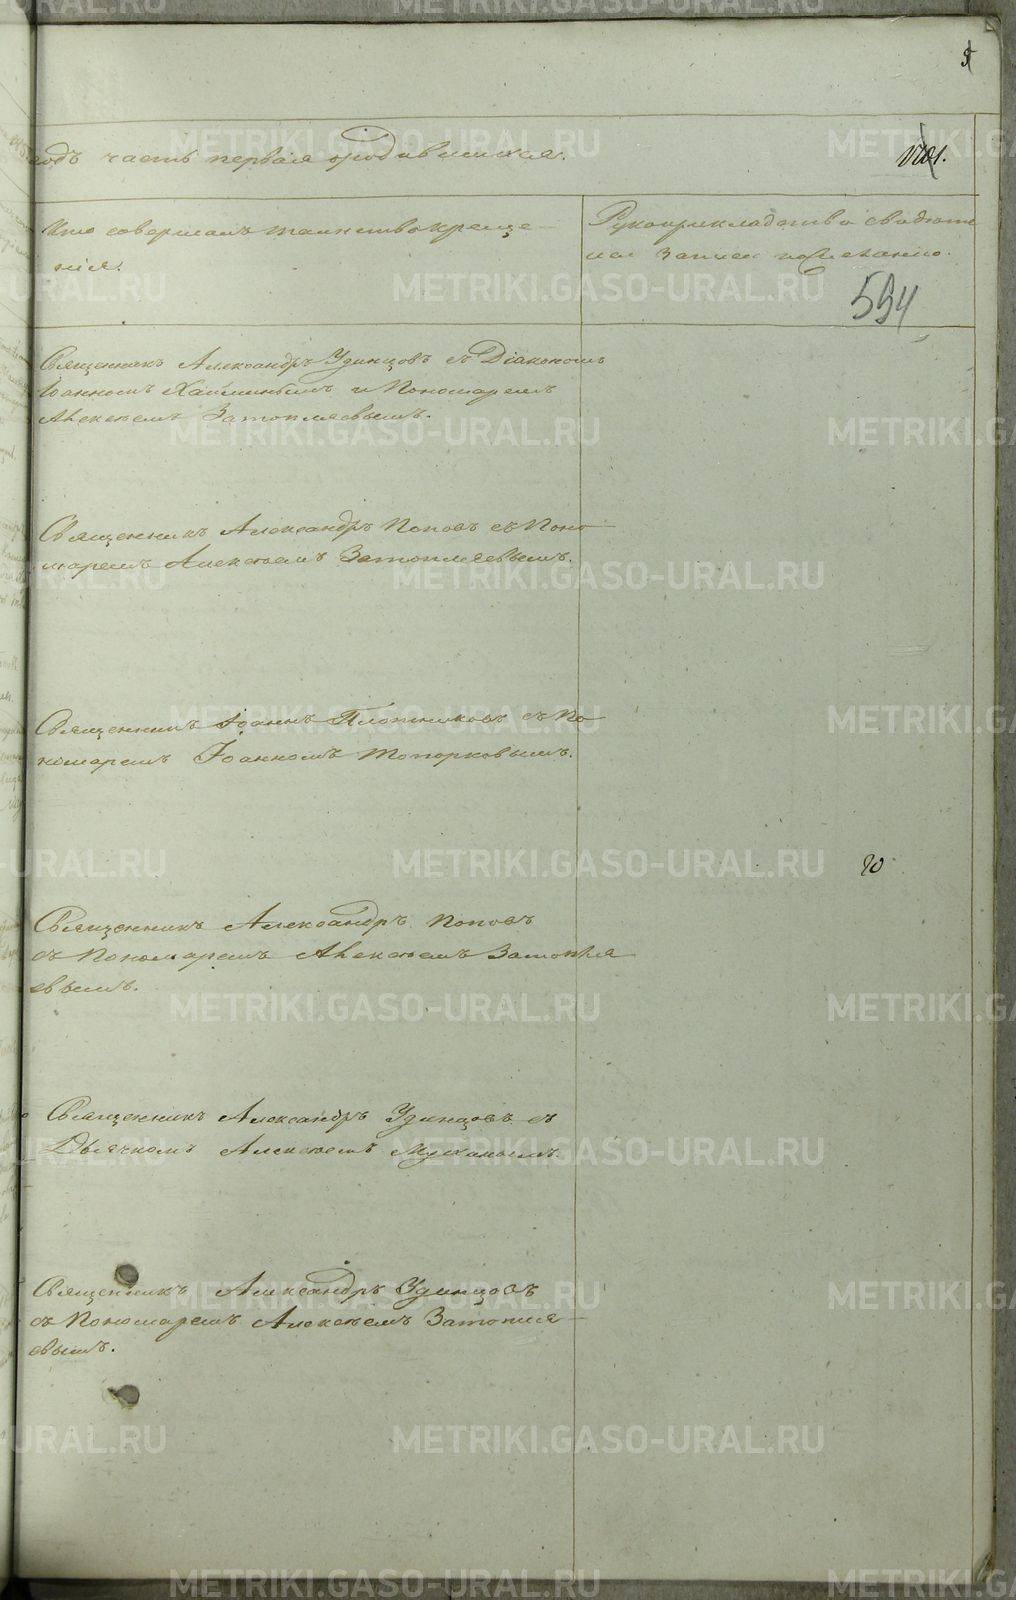 5
годъ часть первая о родившихся.
Кто совершалъ таинство креще-
нія.
Рукоприкладство свидѣте
лей записи по желанію.
594
Священникъ Александръ Удинцовъ съ Діакономъ
Іоанномъ и Пономаремъ
Алексѣемъ Затопляевымъ.
Священникъ Александръ Поповъ съ Поно-
маремъ Алексѣемъ Затопляевымъ.
Священникъ Іоаннъ Плотниковъ съ По
номаремъ Іоанномъ Топорковымъ.
Священникъ Александръ Поповъ
съ Пономаремъ Алексѣемъ Затопля
евымъ.
Священникъ Александръ Удинцовъ съ
Дьячкомъ Алексѣемъ
Священникъ Александръ Удинцовъ
съ Пономаремъ Алексѣемъ Затопля-
евымъ.
METRIKI.GASO-URAL.RU